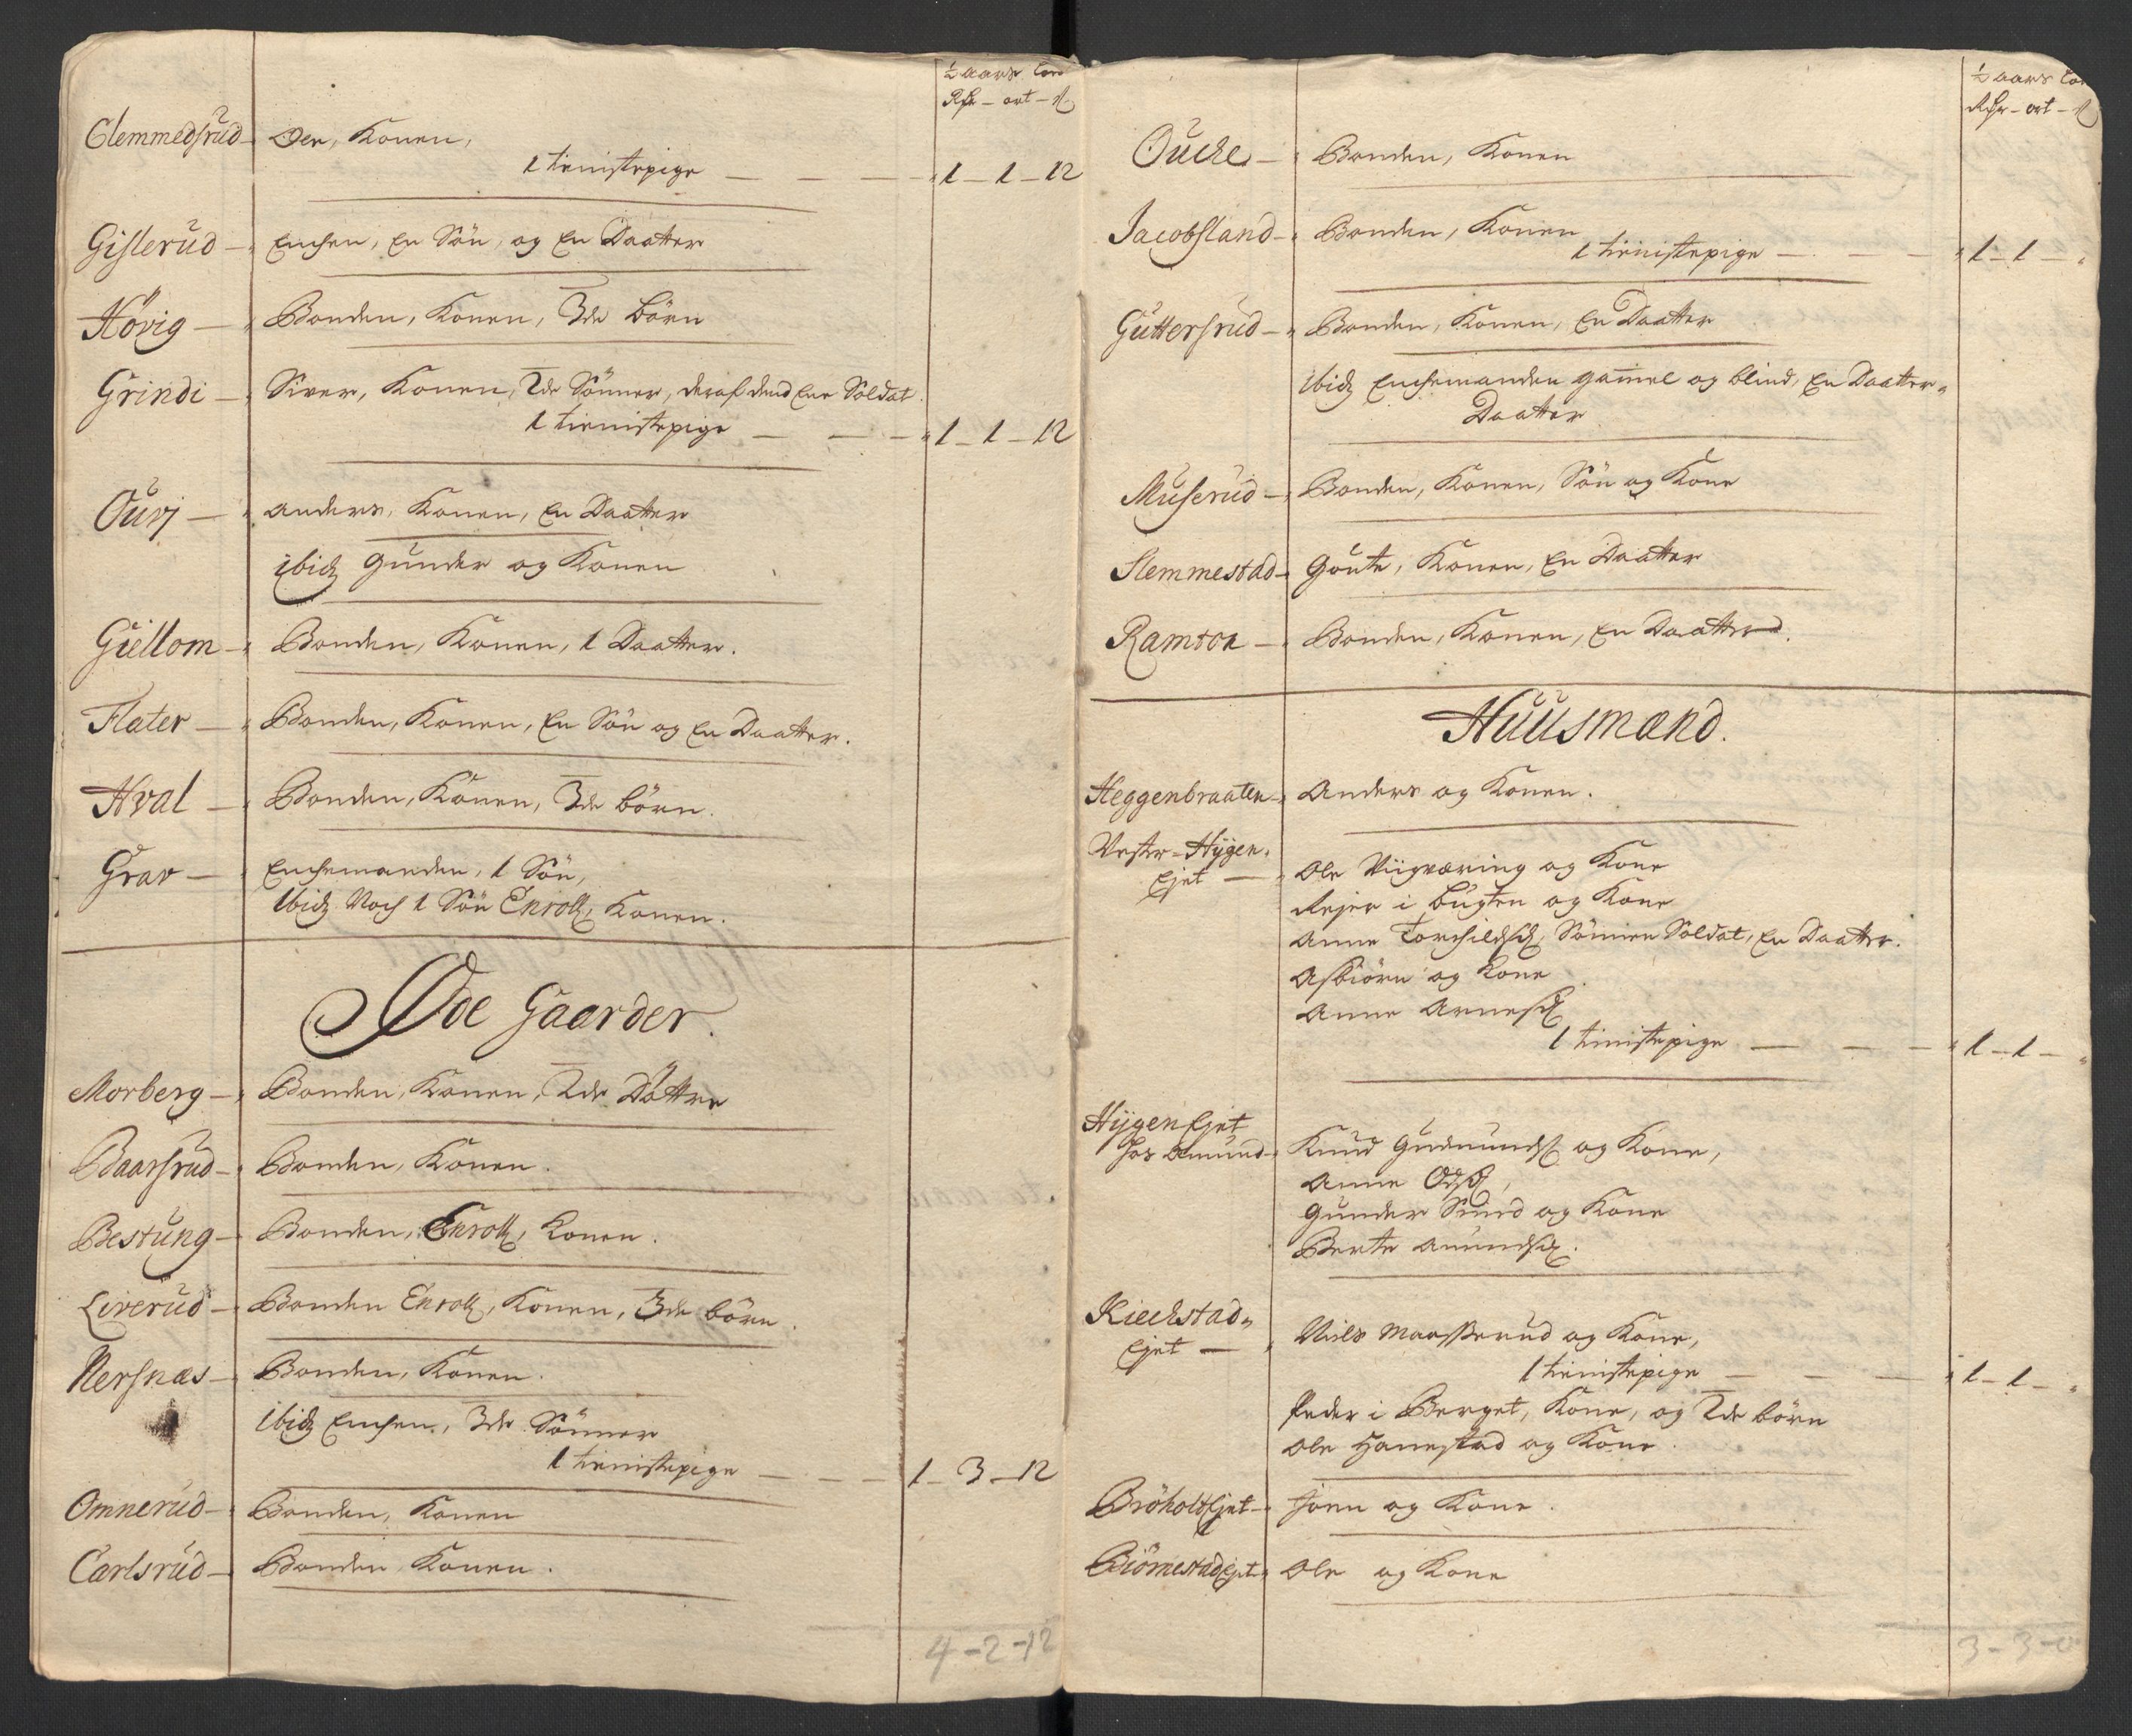 ½ Aars
Rdr – ort – ß
Clemmedsrud – Oen, Konen,
1 tienistepige – – – 1 – 1 – 12
Gislerud – Enchen, En Sön, og En Daatter
Hövig – Bonden, Konen, 3de börn
Grindi – Siver, Konen, 2de Sönner, deraf dend Ene Soldat
1 tienistepige – – – 1 – 1 – 12
Ourj – Anders, Konen, En Daatter
ibid Gunder og Konen
Giellom – Bonden, Konen, 1 Daatter.
Flater – Bonden, Konen, En Sön og En Daatter.
Hval – Bonden, Konen, 3de börn.
Grav – Enchemanden, 1 Sön,
Ibid Noch 1 Sön Enroll, Konen.
Øde Gaarder.
Morberg – Bonden, Konen, 2de Döttre
Baarsrud – Bonden, Konen.
Bestung – Bonden, Enroll, Konen.
Liverud – Bonden Enroll, Konen, 3de börn.
Nersnæs – Bonden, Konen.
Ibid Enchen, 3de Sönner
1 tienistepige – – – 1 – 3 – 12
Omnerud – Bonden, Konen
Carlsrud – Bonden, Konen.
4 – 2 – 12
½ Aars
Rdr – ort – ß
Oucke – Bonden, Konen
Jacobsland – Bonden, Konen
1 tienistepige – – – 1 – 1 – "
Guttersrud – Bonden, Konen, En Daatter
Ibid Enchemanden gammel og blind, En Daatter
Daatter
Muserud – Bonden, Konen, Sön og Kone
Slemmestad – Goute, Konen, En Daatter
Ramton – Bonden, Konen, En Daatter.
Huusmænd.
Heggenbraaten – Anders og Konen.
Vestr-Hÿgen
Ejet – Ole Viigværing og Kone
Rejer i bugten og Kone
Anne Torchilds, Sönnen Soldat, En Daatter.
Asbiörn og Kone
Anne Arnes
1 tienistepige – – – 1 – 1 – "
Hÿgen Ejet
hos Amund – Knud Gudmunds og Kone,
Anne Ods,
Gunder Smed og Kone
Berte Amunds.
Kieckstad
Ejet – Niels Maasserud og Kone,
1 tienistepige – – – 1 – 1 – "
Peder i Berget, Kone, og 2de börn
Ole Hanestad og Kone.
Bröholt Ejet – Joen og Kone.
Biörnestad Ejet – Ole og Kone
3 – 3 – 0